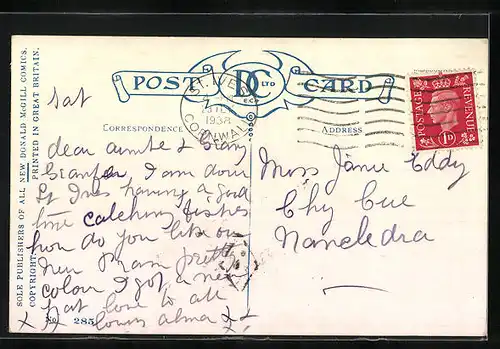 POST D C LTD CARD
E.C.4
ST. IVES
1938
CORNWALL
POSTAGE REVENUE
1D
CORRESPONDENCE
ADDRESS
SOLE PUBLISHERS OF ALL NEW DONALD McGILL COMICS.
COPYRIGHT. PRINTED IN GREAT BRITAIN.
No. 285
Sat
dear auntie &
I am down
St Ives having a good
time catching fishes
how do you like our
new pram pretty
colour I got a new
hat love to all
x x love alma x x
Miss Janie Eddy
Chy Cue
Nancledra